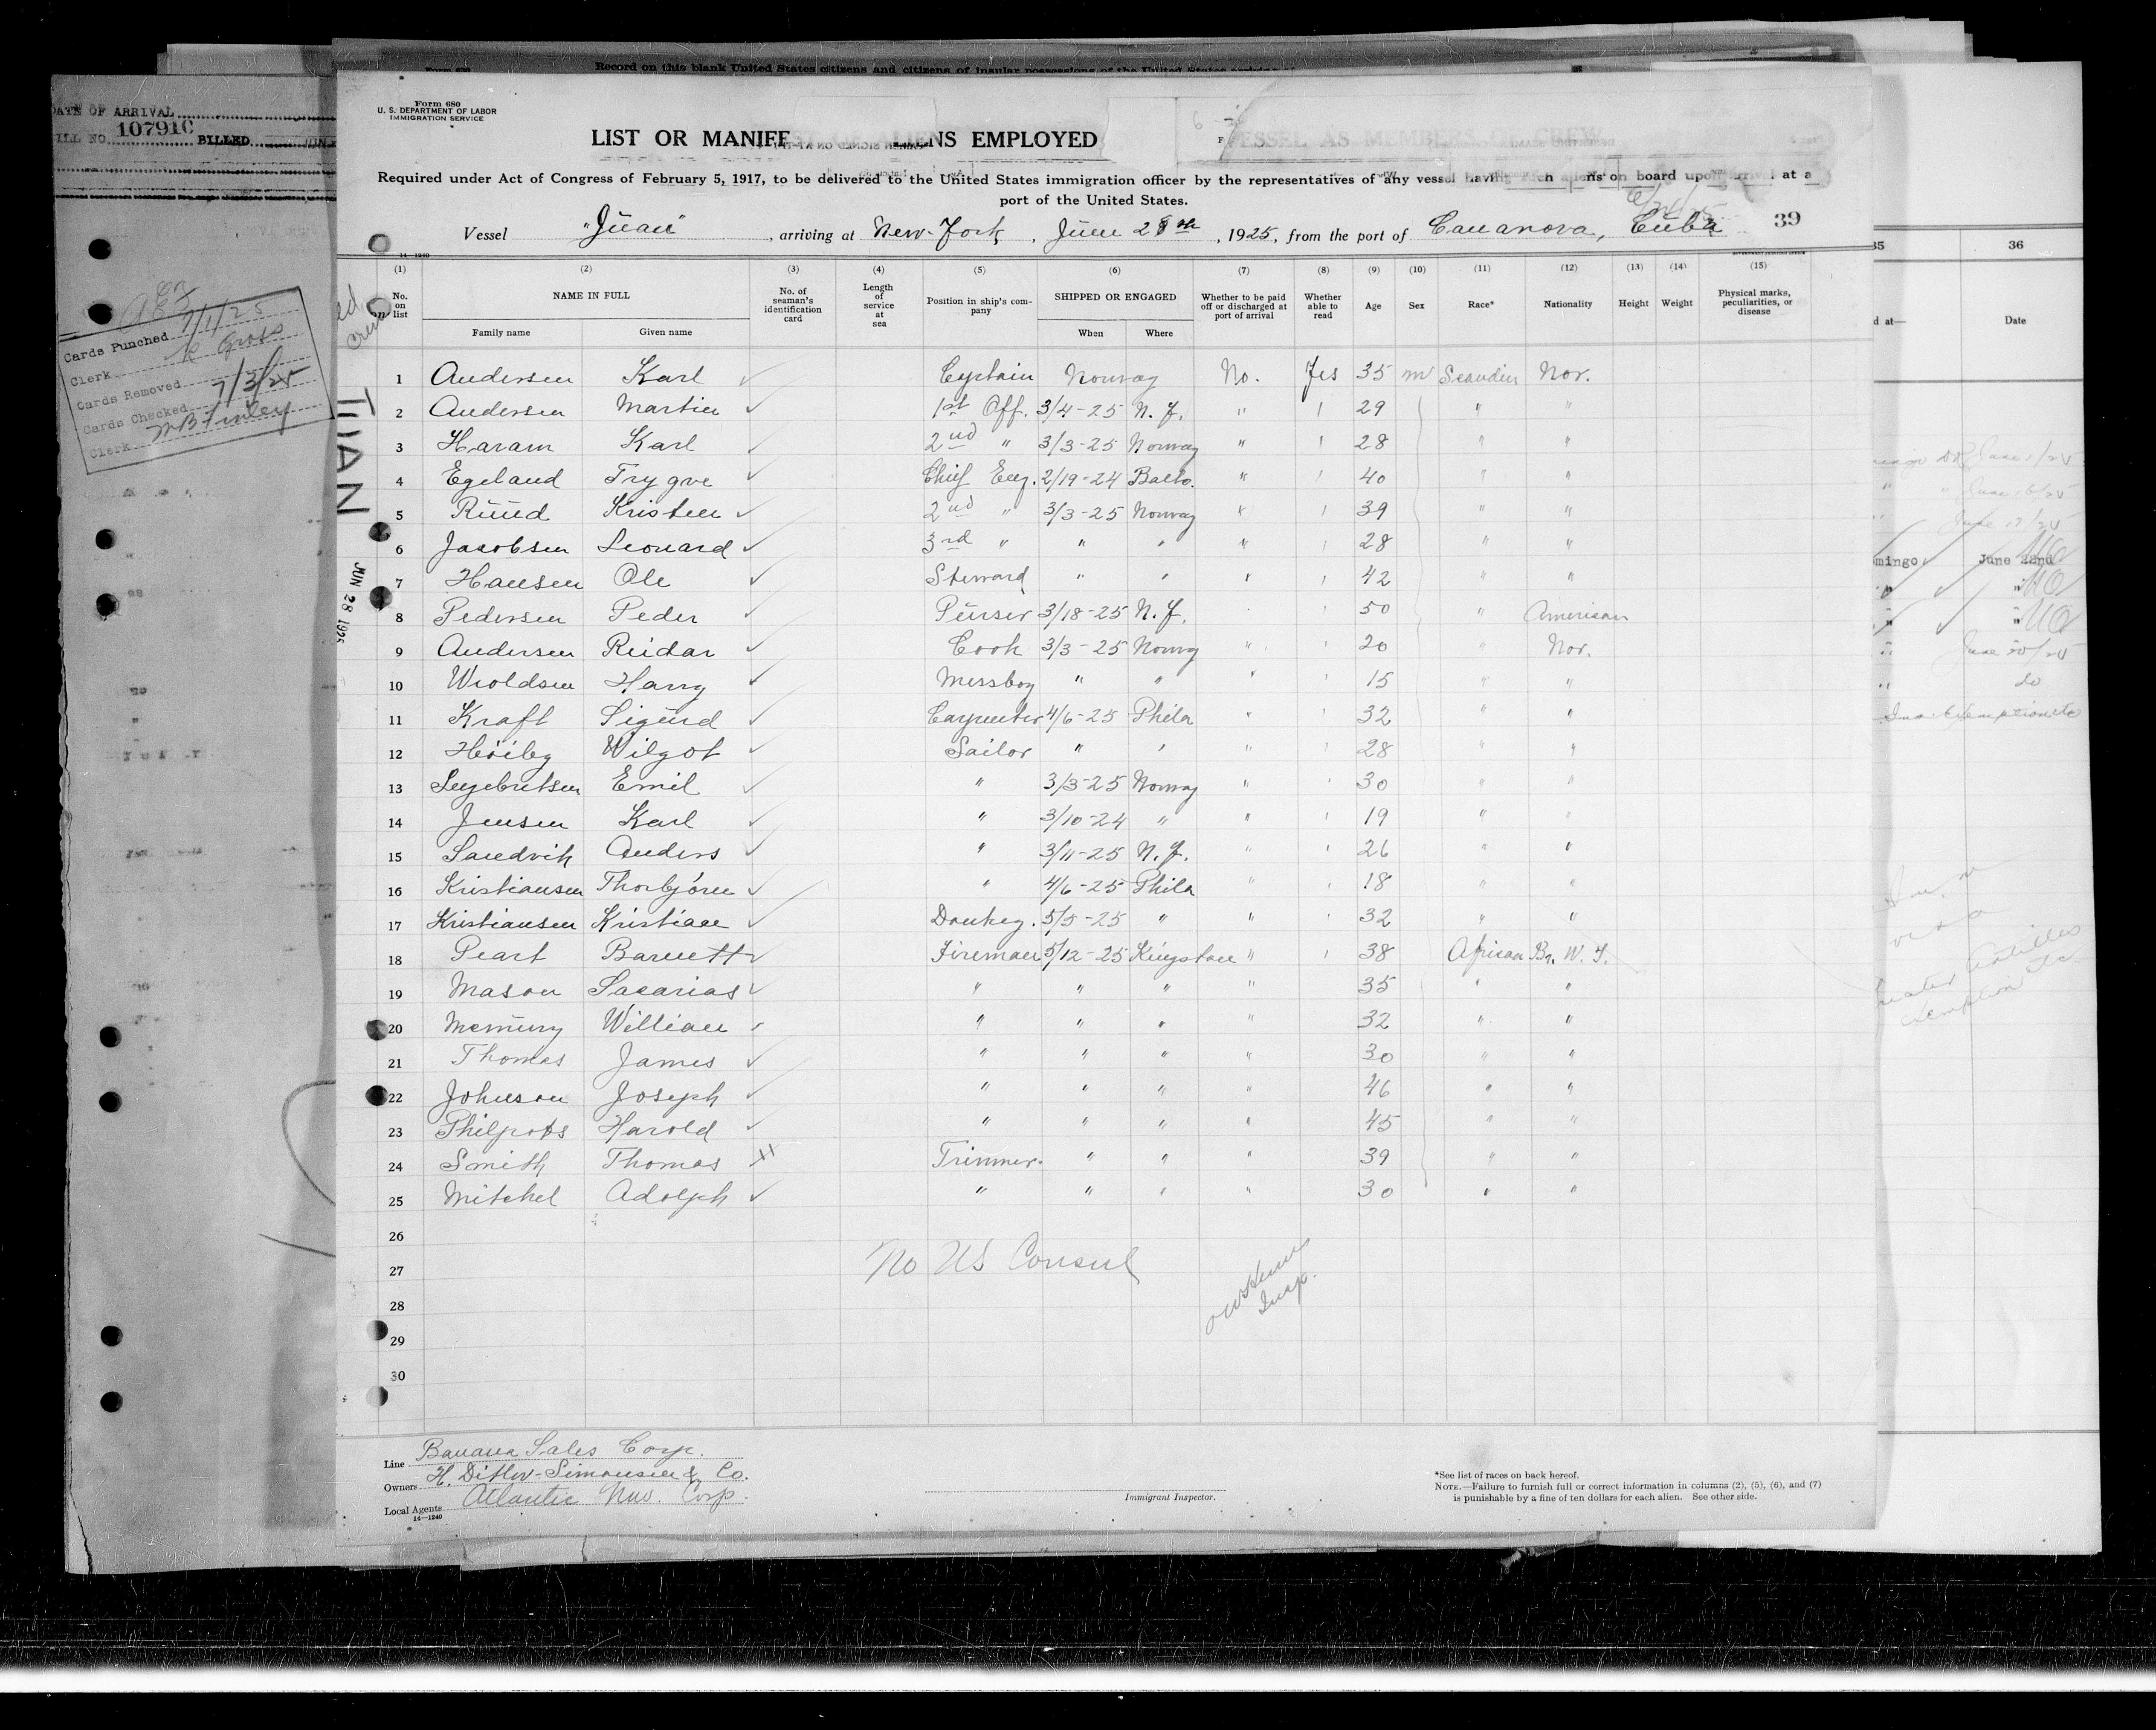 Form 680
U. S. DEPARTMENT OF LABOR
IMMIGRATION SERVICE
LIST OR MANIFE ENS EMPLOYED VESSEL AS MEMBERS OF CREW
Required under Act of Congress of February 5, 1917, to be delivered to the United States immigration officer by the representatives of any vessel having such aliens on board upon arrival at a
port of the United States.
Vessel "Juan", arriving at New-York, June 28th, 1925, from the port of Cananova, Cuba 39
(1) (2) (3) (4) (5) (6) (7) (8) (9) (10) (11) (12) (13) (14) (15)
No. on list NAME IN FULL No. of seaman's identification card Length of service at sea Position in ship's company SHIPPED OR ENGAGED Whether to be paid off or discharged at port of arrival Whether able to read Age Sex Race* Nationality Height Weight Physical marks, peculiarities, or disease
Family name Given name When Where
1 Andersen Karl Captain Norway No. Yes 35 m Scandin Nor.
2 Andersen Martin 1st Off. 3/4-25 N. Y. " " 29 " "
3 Haram Karl 2nd " 3/3-25 Norway " " 28 " "
4 Egeland Trygve Chief Eng. 2/19-24 Balto. " " 40 " "
5 Ruud Kristen 2nd " 3/3-25 Norway " " 39 " "
6 Jacobsen Leonard 3rd " " " " " 28 " "
7 Hansen Ole Steward " " " " 42 " "
8 Pedersen Peder Purser 3/18-25 N. Y. " 50 " American
9 Andersen Reidar Cook 3/3-25 Norwy " " 20 " Nor.
10 Wroldsen Harry Messboy " " " " 15 " "
11 Kraft Sigurd Carpenter 4/6-25 Phila " " 32 " "
12 Høiby Wilgot Sailor " " " " 28 " "
13 Ingebretsen Emil " 3/3-25 Norway " " 30 " "
14 Jensen Karl " 3/10-24 " " " 19 " "
15 Sandvik Anders " 3/11-25 N. Y. " " 26 " "
16 Kristiansen Thorbjørn " 4/6-25 Phila " " 18 " "
17 Kristiansen Kristian Donkey. 5/5-25 " " " 32 " "
18 Peart Barnett Fireman 5/12-25 Kingston " " 38 African Br. W. I.
19 Mason Sacarias " " " " 35 " "
20 William " " " " 32 " "
21 Thomas James " " " " 30 " "
22 Johnson Joseph " " " " 46 " "
23 Philpots Harold " " " " 45 " "
24 Smith Thomas Trimmer. " " " 39 " "
25 Mitchel Adolph " " " " 30 " "
26
27 No US Consul
28
29
30
Insp.
Line Banana Sales Corp.
Owners H. Ditlev-Simonsen & Co.
Local Agents Atlantic Nav. Corp.
14—1240
Immigrant Inspector.
*See list of races on back hereof.
NOTE.—Failure to furnish full or correct information in columns (2), (5), (6), and (7)
is punishable by a fine of ten dollars for each alien. See other side.
JUAN
JUN 28 1925
DATE OF ARRIVAL
BILL NO. 107910 BILLED
Cards Punched 7/1/25
Clerk
Cards Removed
Cards Checked 7/3/25
Clerk
35 36
Date
mingo June 22nd